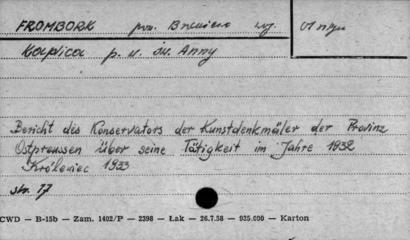 FROMBORK pow. Braniewo woj.
Kaplica p. w. św. Anny
Bericht des Konservators der Kunstdenkmäler der Provinz
Ostpreussen über seine Tätigkeit im Jahre 1932
Królewiec 1933
str. 17
CWD — B-15b — Zam. 1402/P — 2398 — Łak — 26.7.58 — 935.000 — Karton